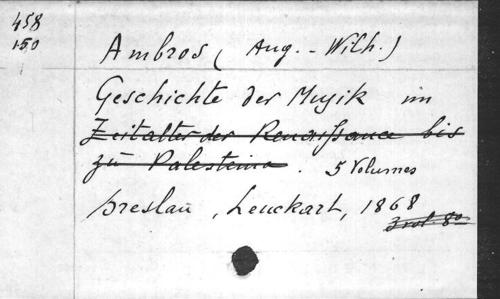 458
150
Ambros (Aug. - Wilh.)
Geschichte der Musik im
Zeitalter der Renaissance bis
zu Palestrina. 5 Volumes
Breslau, Leuckart, 1868
3 vol. 8o